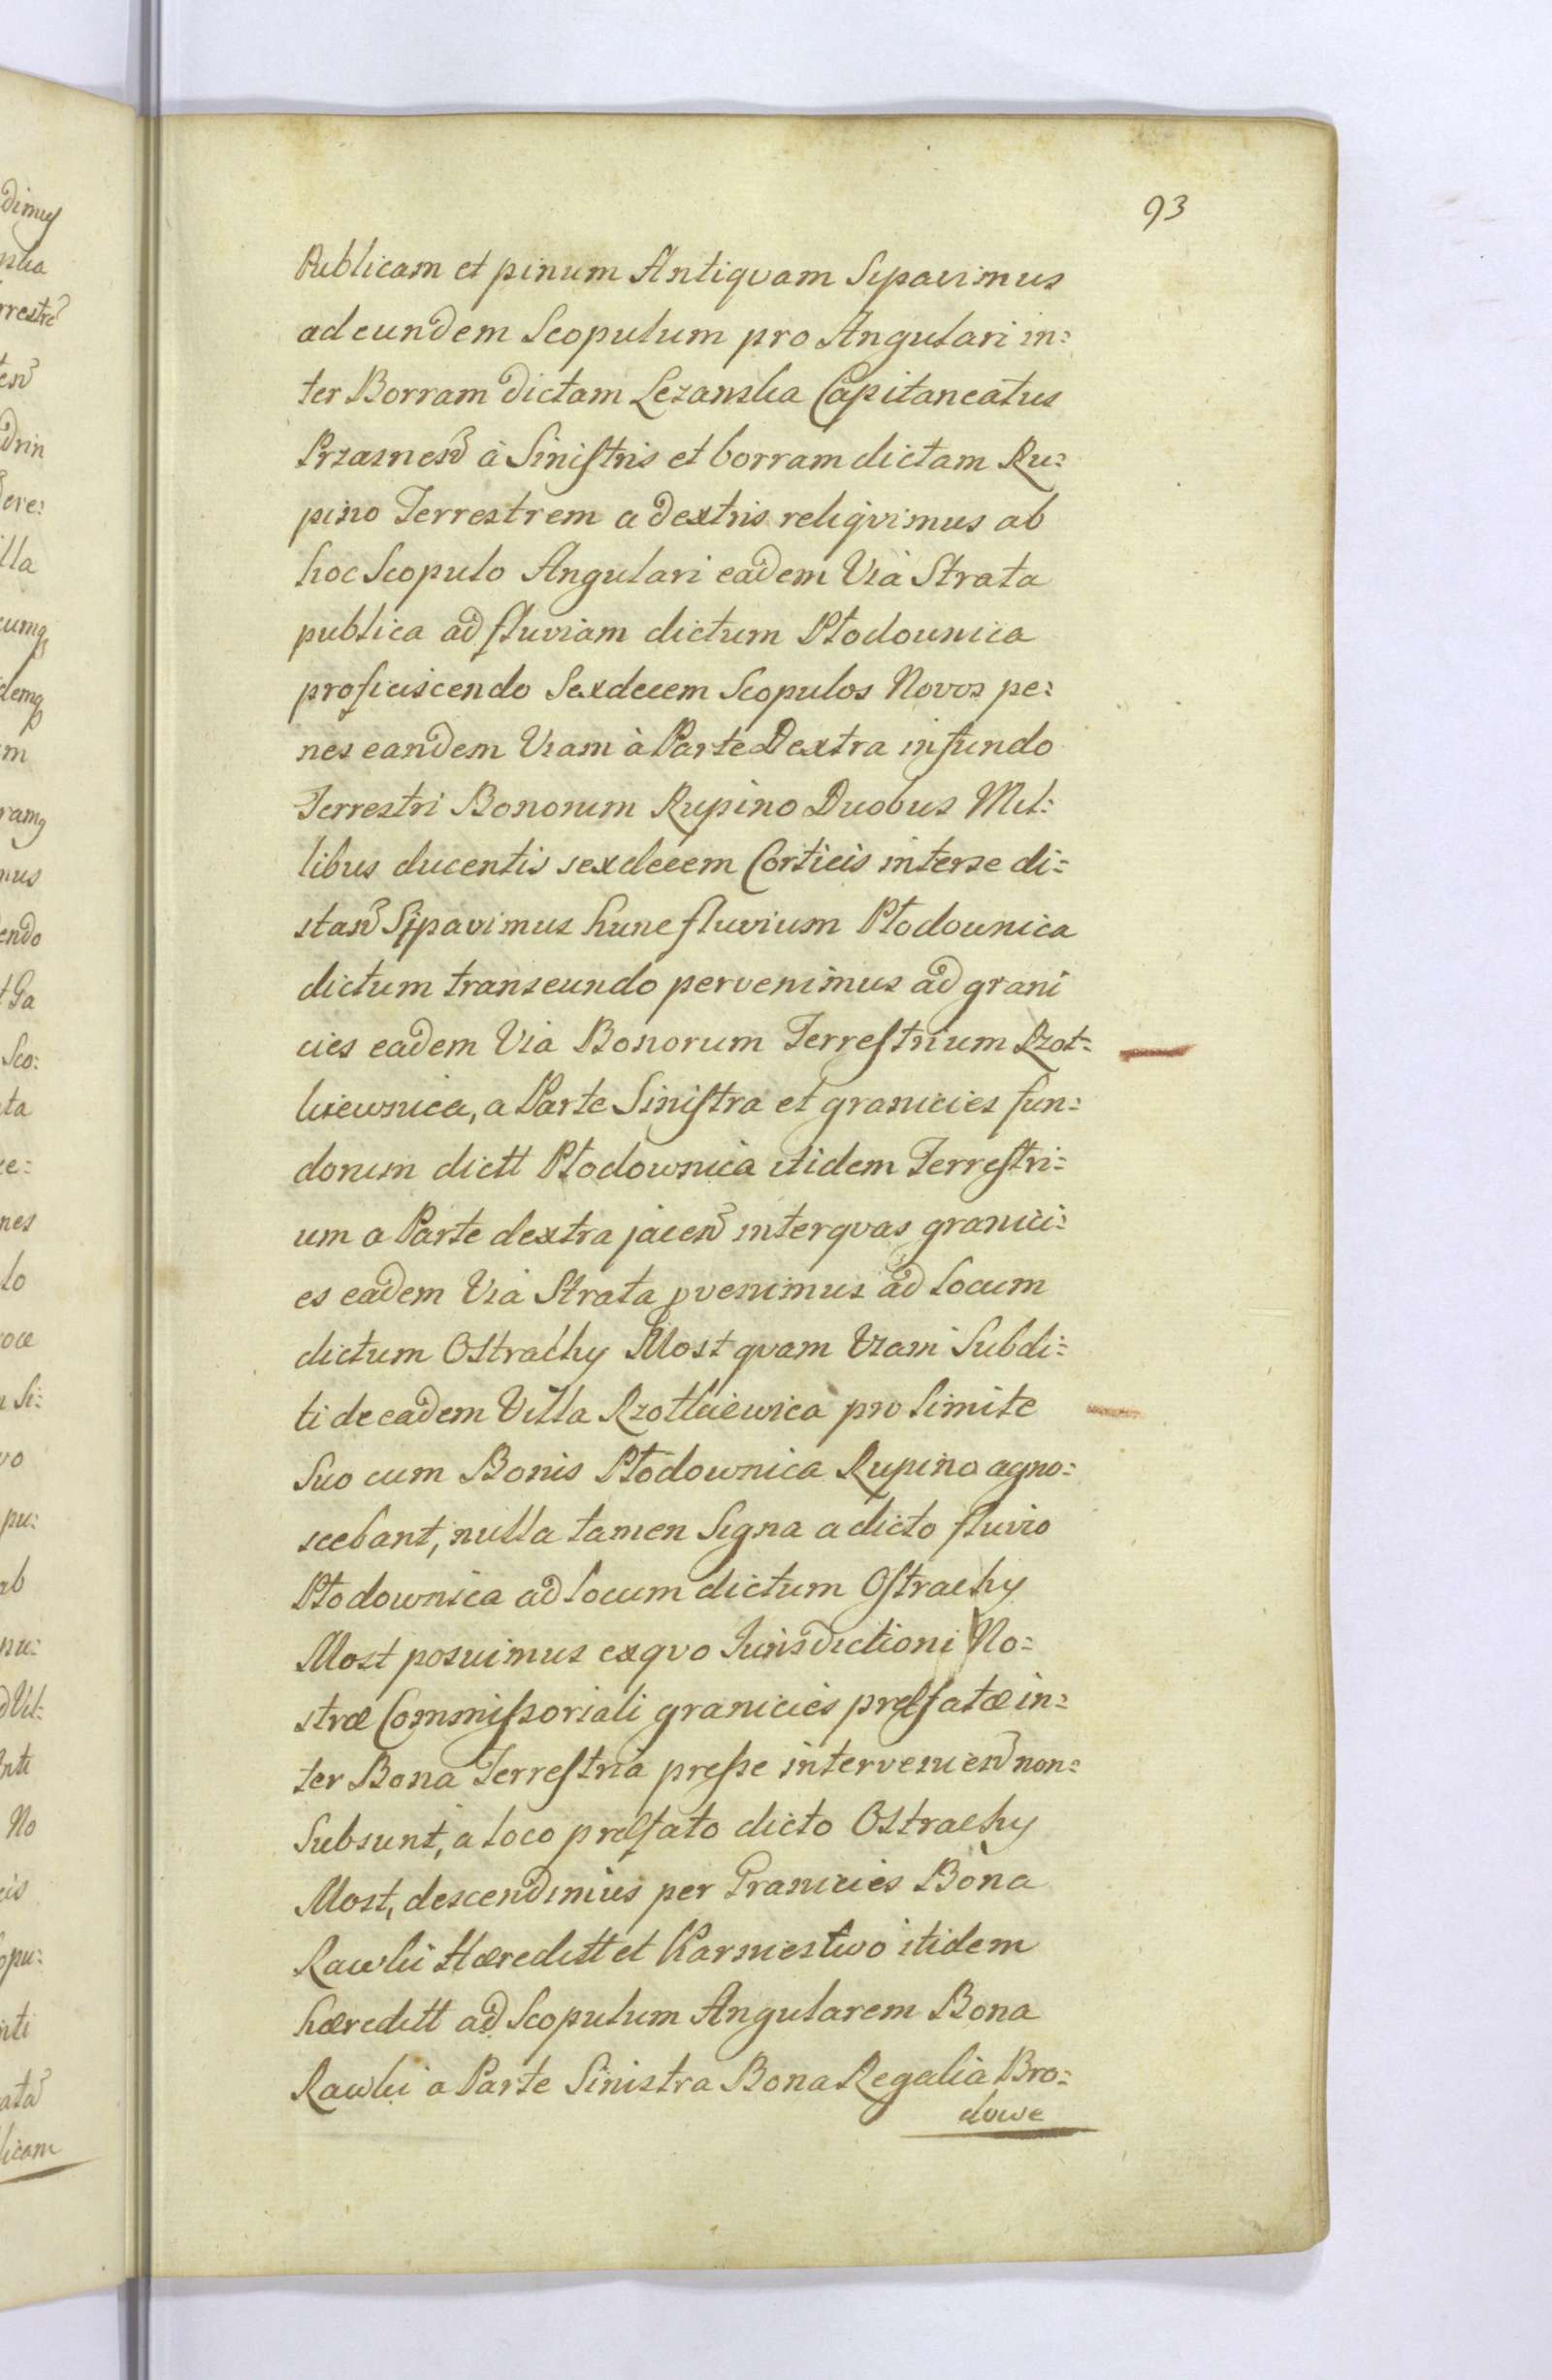 93
Publicam et pinum Antiqvam Sypavimus
ad eundem Scopulum pro Angulari in:
ter Borram dictam Lezanska Capitaneatus
Przasnesß à Sinistris et borram dictam Ru:
pino Terrestrem a dextris reliqvimus ab
hoc Scopulo Angulari eadem Via Strata
publica ad fluviam dictum Płodownica
proficiscendo Sexdecem Scopulos Novos pe:
nes eandem Viam à Parte Dextra in fundo
Terrestri Bonorum Rupino Duobus Mil:
libus ducentis sexdecem Corticis interse di:
stan Sypavimus hunc fluvium Płodownica
dictum transeundo pervenimus ad grani
cies eadem Via Bonorum Terrestrium Rzot:
kiewnica, a Parte Sinistra et granicies fun:
dorum dictt Płodownica itidem Terrestri:
um a Parte dextra jacen interqvas granici:
es eadem Via Strata pvenimus ad locum
dictum Ostrachy Most qvam Viam Subdi:
ti de eadem Villa Rzotkiewica pro limite
Suo cum Bonis Płodownica Rupino agno:
scebant, nulla tamen Signa a dicto fluvio
Płodownica ad locum dictum Ostrachy
Most posuimus exqvo Jurisdictioni No:
stræ Commissoriali granicies præfatæ in:
ter Bona Terrestria presse intervenien non:
Subsunt, a loco præfato dicto Ostrachy
Most, descendimus per Granicies Bona
Rawki Hæreditt et Karniestwo itidem
hæreditt ad Scopulum Angularem Bona
Rawki a Parte Sinistra Bona Regalia Bro:
dowe